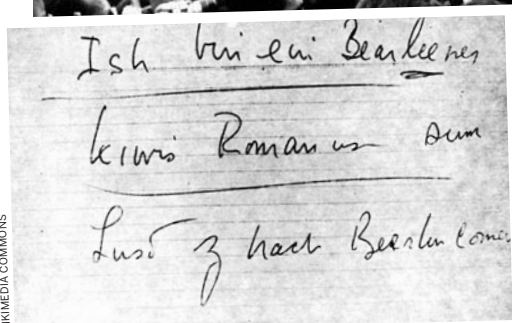 Ish bin ein Bearleener
kiwis Romanus sum
Lusd z nach Bearlin comen
WIKIMEDIA COMMONS